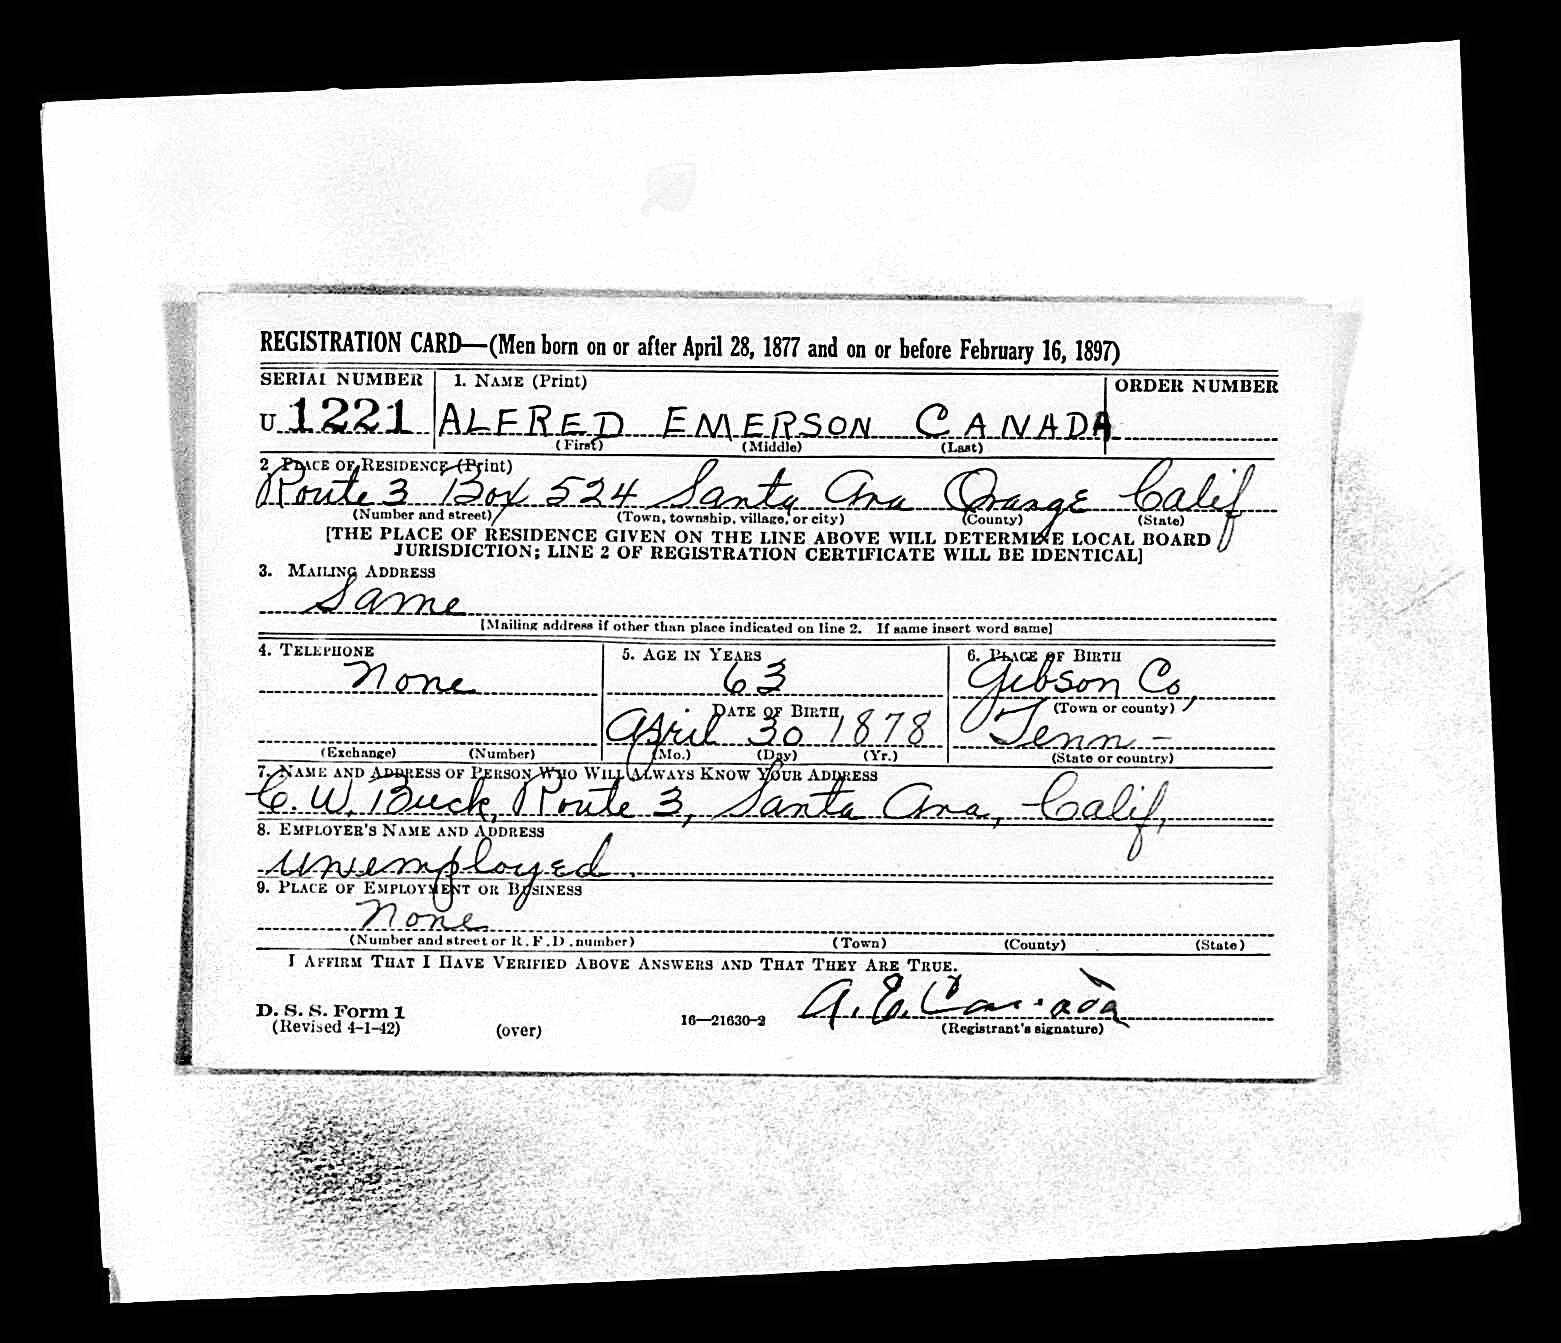 REGISTRATION CARD—(Men born on or after April 28, 1877 and on or before February 16, 1897)
SERIAL NUMBER 1. NAME (Print) ORDER NUMBER
U 1221 ALFRED EMERSON CANADA
(First) (Middle) (Last)
2. PLACE OF RESIDENCE (Print)
Route 3 Box 524 Santa Ana Orange Calif
(Number and street) (Town, township, village, or city) (County) (State)
[THE PLACE OF RESIDENCE GIVEN ON THE LINE ABOVE WILL DETERMINE LOCAL BOARD
JURISDICTION; LINE 2 OF REGISTRATION CERTIFICATE WILL BE IDENTICAL]
3. MAILING ADDRESS
Same
[Mailing address if other than place indicated on line 2. If same insert word same]
4. TELEPHONE 5. AGE IN YEARS 6. PLACE OF BIRTH
None 63 Gibson Co,
DATE OF BIRTH (Town or county)
April 30 1878 Tenn-
(Exchange) (Number) (Mo.) (Day) (Yr.) (State or country)
7. NAME AND ADDRESS OF PERSON WHO WILL ALWAYS KNOW YOUR ADDRESS
C. W. Buck, Route 3, Santa Ana, Calif,
8. EMPLOYER'S NAME AND ADDRESS
unemployed.
9. PLACE OF EMPLOYMENT OR BUSINESS
None
(Number and street or R. F. D. number) (Town) (County) (State)
I AFFIRM THAT I HAVE VERIFIED ABOVE ANSWERS AND THAT THEY ARE TRUE.
A. E. Canada
D. S. S. Form 1
(Revised 4-1-42) (over) 16—21630-2 (Registrant's signature)